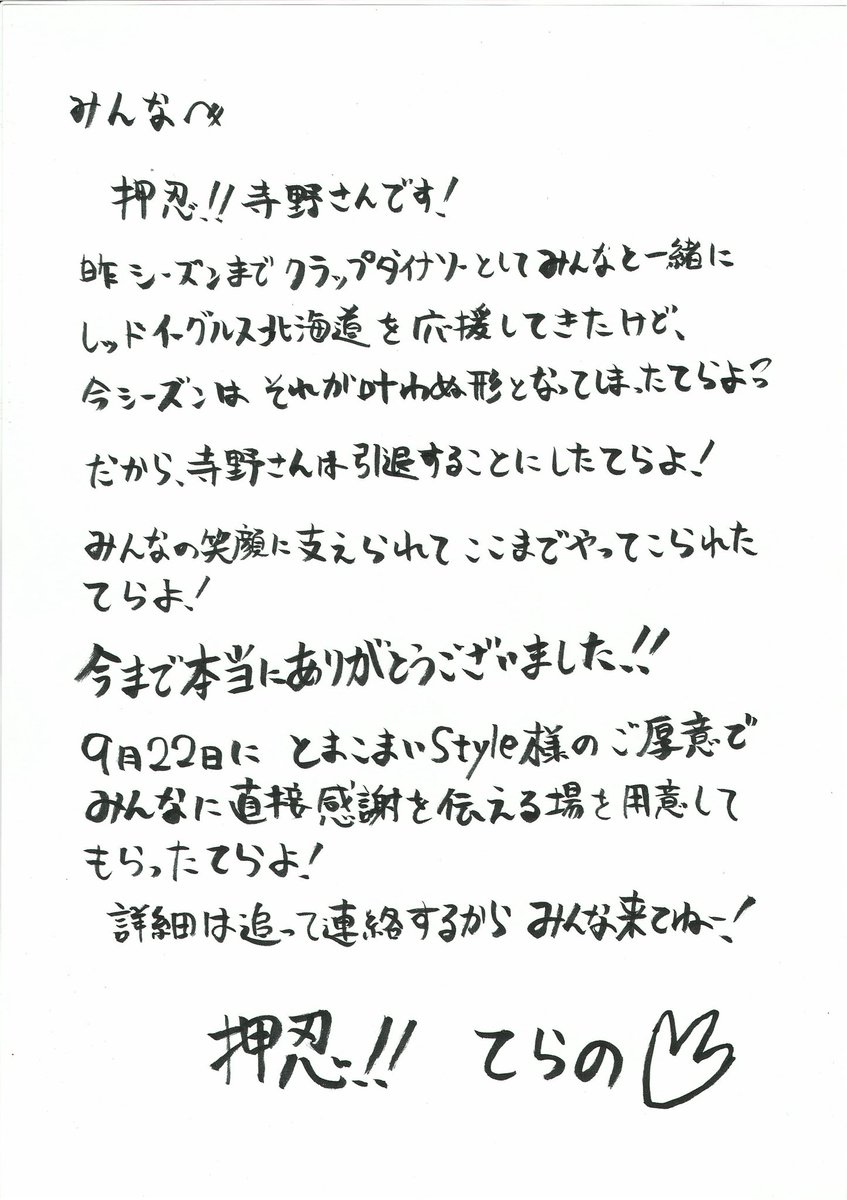 みんなへ
押忍!!寺野さんです!
昨シーズンまでクラップダイナソーとしてみんなと一緒に
レッドイーグルス北海道を応援してきたけど、
今シーズンはそれが叶わぬ形となってしまったてらよ
だから、寺野さんは引退することにしたてらよ!
みんなの笑顔に支えられてここまでやってこられた
てらよ!
今まで本当にありがとうございました!!
9月22日に とまこまいStyle様のご厚意で
みんなに直接感謝を伝える場を用意して
もらったてらよ!
詳細は追って連絡するから みんな来てねー!
押忍!! てらの